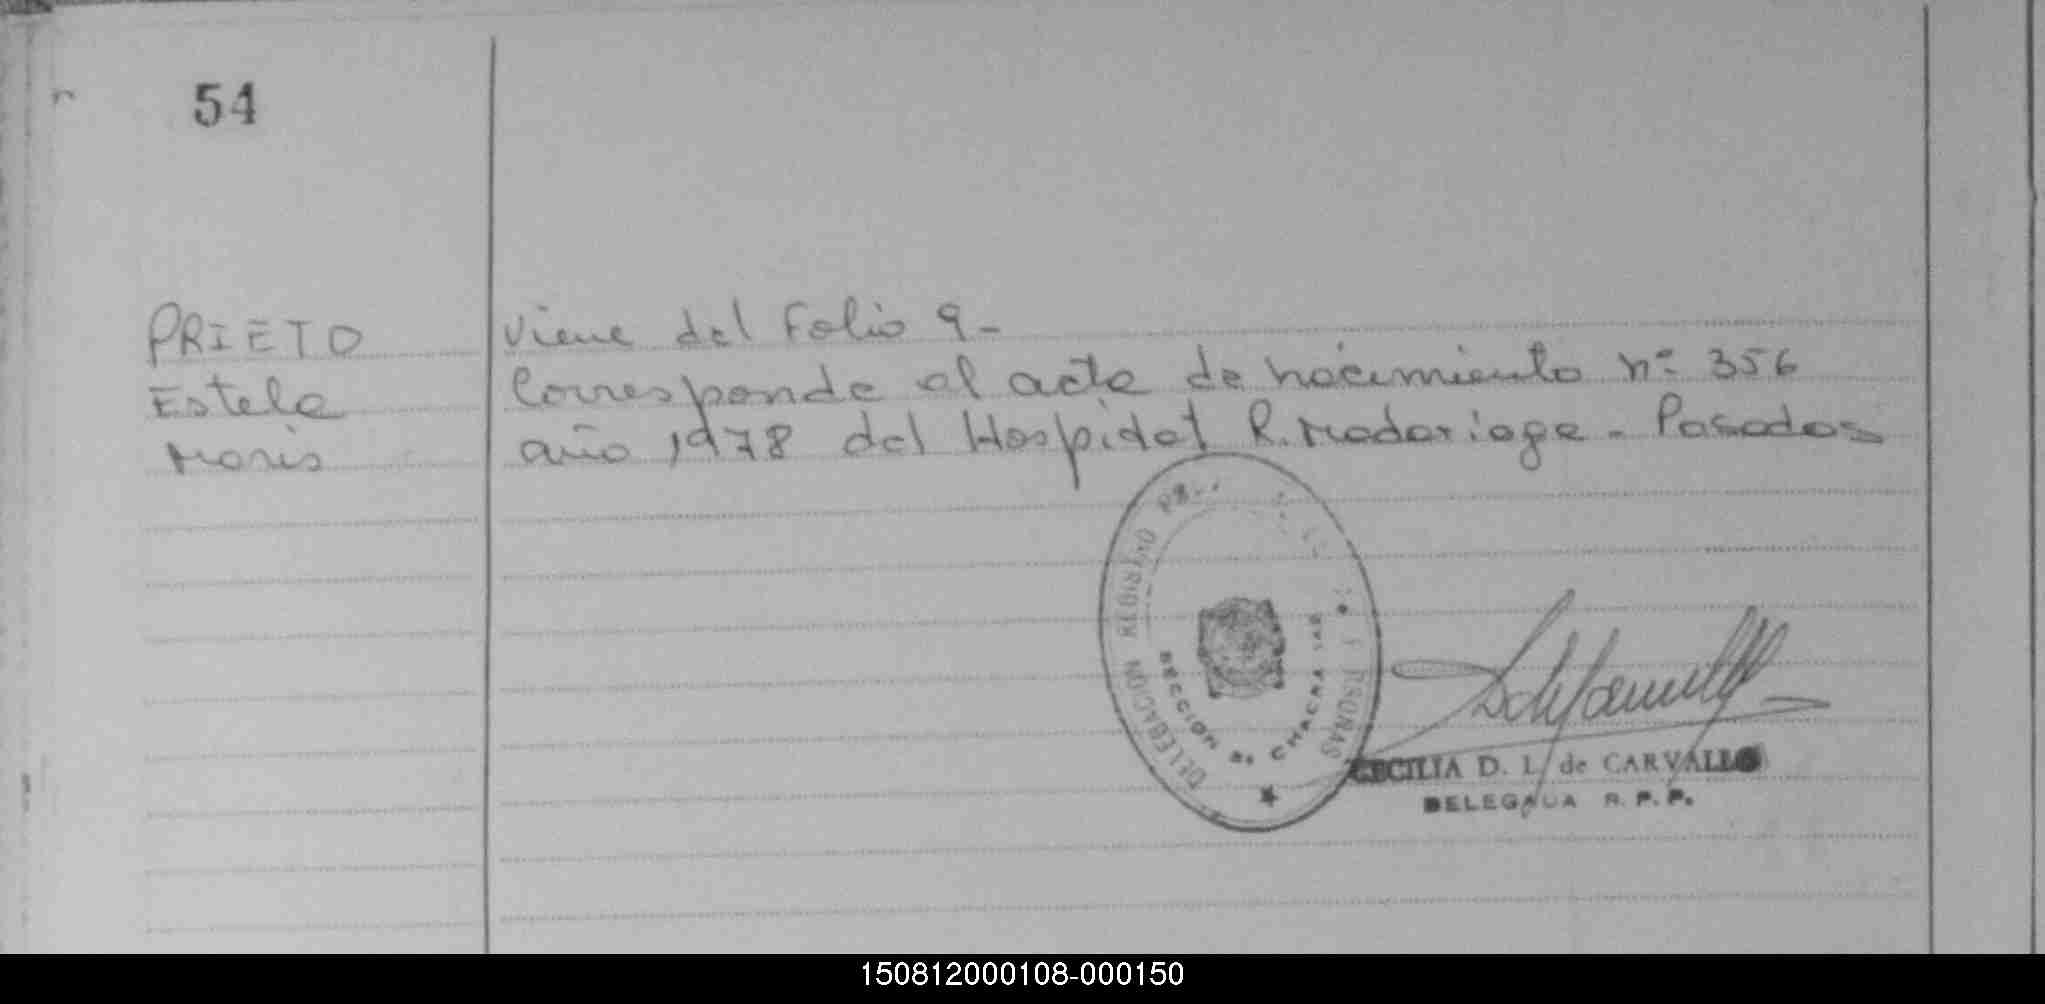 54
PRIETO
Estela
Maris
Viene del Folio 9-
Corresponde al acta de nacimiento nº 356
año 1978 del Hospital R. Madariaga - Posadas
DELEGACION REGISTRO
SECCION
CHACRA
CECILIA D. L. de CARVALLO
DELEGADA R. P. P.
150812000108-000150